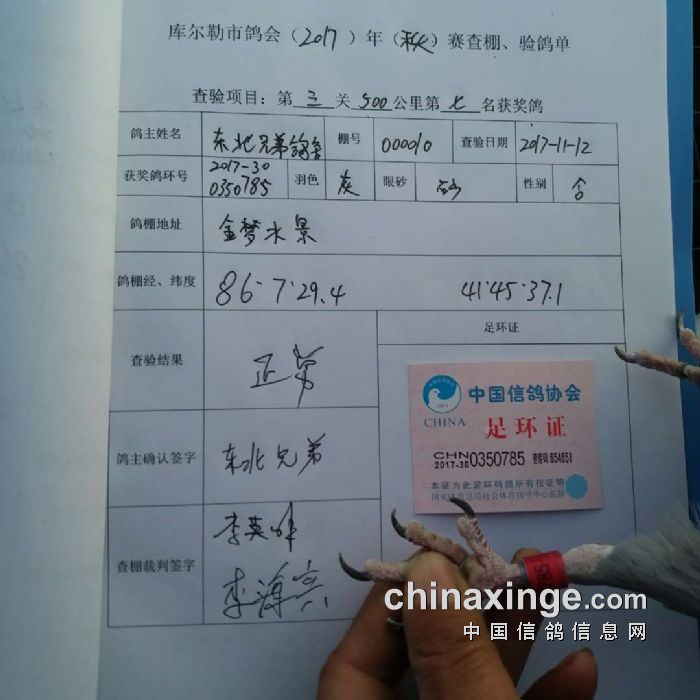 库尔勒市鸽会（2017）年（秋）赛查棚、验鸽单
查验项目：第 三 关 500 公里第 七 名获奖鸽
鸽主姓名 东北兄弟鸽舍 棚号 000010 查验日期 2017-11-12
获奖鸽环号 2017-30 0350785 羽色 灰 眼砂 砂 性别
鸽棚地址 金梦水景
鸽棚经、纬度 86·7·29.4 41·45·37.1
查验结果 正常
足环证
中国信鸽协会
CHINA
足环证
CHN
2017-30 0350785 查验码:654651
本证为此足环码鸽所有权证明
国家体育总局社会体育指导中心监制
鸽主确认签字 东北兄弟
查棚裁判签字
785
chinaxinge.com
中国信鸽信息网